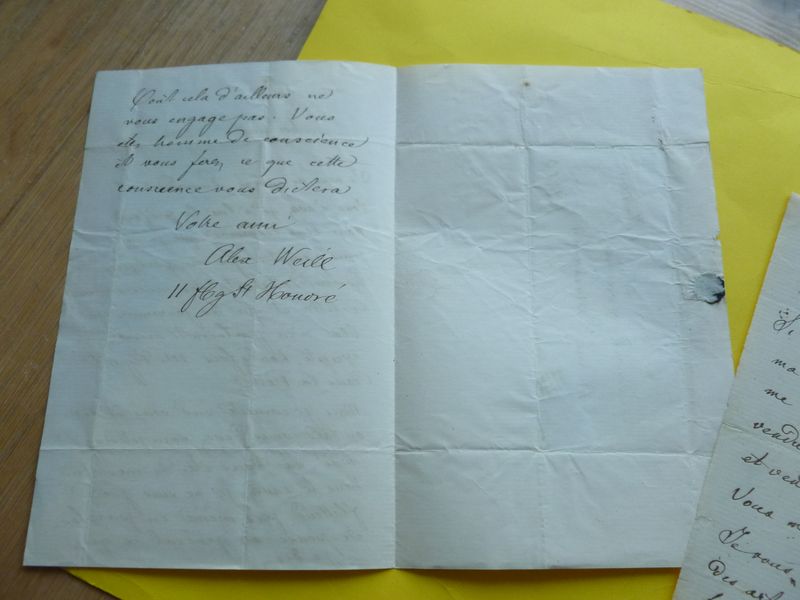 Tout cela d'ailleurs ne
vous engage pas. Vous
etes homme de conscience
et vous ferez ce que cette
conscience vous dictera
Votre ami
Alex Weill
11 fbg St Honoré
Si
ma
me
vendre
et ven
Vous m
Je vous
Des art